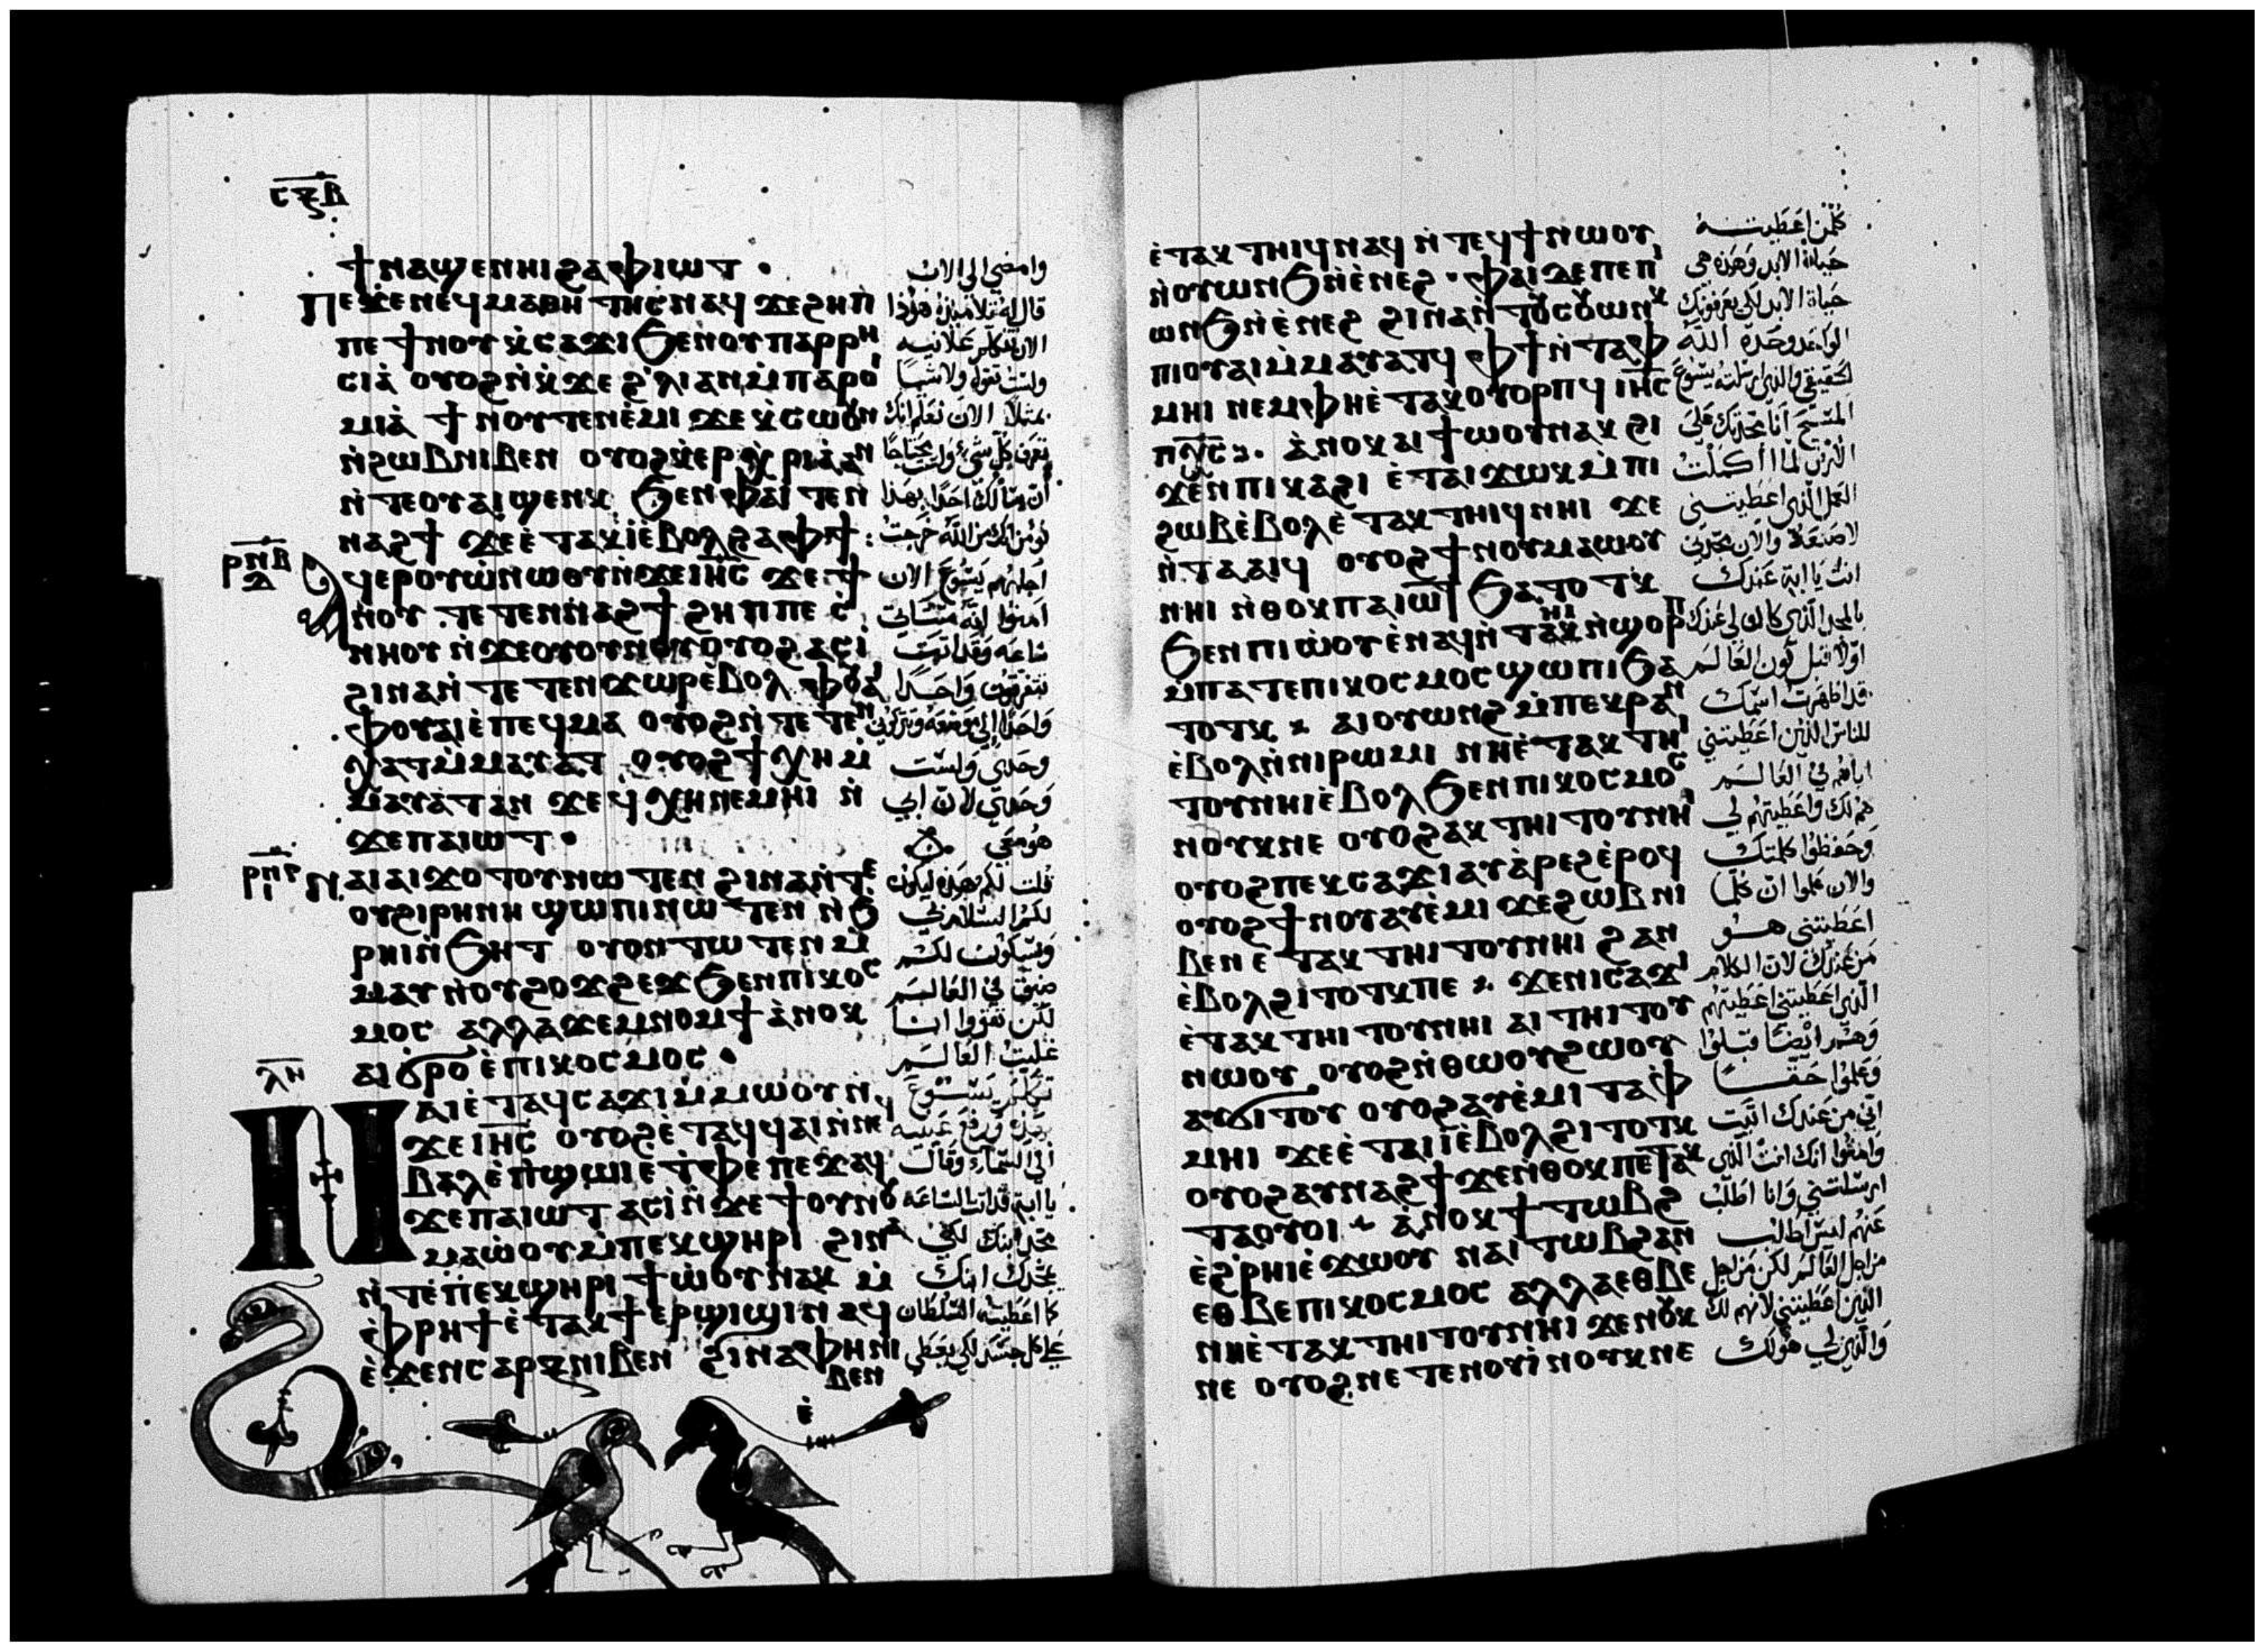 ⲥⲝⲃ
ϯⲛⲁϣⲉⲛⲏⲓ ϩⲁⲫⲓⲱⲧ ·
ⲡⲉϫⲉⲛⲉϥⲙⲁⲑⲏⲧⲏⲥ ⲛⲁϥ ϫⲉϩⲏⲡ
ⲡⲉ ϯⲛⲟⲩ ⲭⲥⲁϫⲓ ϧⲉⲛⲟⲩⲡⲁⲣⲣⲏ
ⲥⲓⲁ̀ ⲟⲩⲟϩ ⲛ̀ⲭ̀ϫⲉ ϩ̀ⲗⲓ ⲁⲛ ⲙ̀ⲡⲁⲣⲟⲓ
ⲙⲓⲁ̀ ϯⲛⲟⲩ ⲧⲉⲛⲉ̀ⲙⲓ ϫⲉⲭ̀ⲥⲱⲟⲩⲛ
ⲛ̀ϩⲱⲃ ⲛⲓⲃⲉⲛ ⲟⲩⲟϩ ⲭ̀ⲉⲣⲭ̀ⲣⲓⲁ̀ ⲁⲛ
ⲛ̀ⲧⲉⲟⲩⲁⲓ ϣⲉⲛⲕ ϧⲉⲛⲫⲁⲓ ⲧⲉⲛ
ⲛⲁϩϯ ϫⲉⲉ̀ⲧⲁⲕⲓ̀ ⲉ̀ⲃⲟⲗ ϩⲁⲫϯ :
ⲣⲛⲃ ⲁϥⲉⲣⲟⲩⲱ̀ ⲛⲱⲟⲩ ⲛ̀ϫⲉⲓⲏ̅ⲥ̅ ϫⲉϯ
ⲛⲟⲩ ⲧⲉⲧⲉⲛⲛⲁϩϯ ϩⲏⲡⲡⲉ ⲥ̀
ⲛⲏⲟⲩ ⲛ̀ϫⲉⲟⲩⲟⲩⲛⲟⲩ ⲟⲩⲟϩ ⲁⲥⲓ̀
ϩⲓⲛⲁ ⲛ̀ⲧⲉⲧⲉⲛϫⲱⲣ ⲉ̀ⲃⲟⲗ ⲫⲟⲩⲁⲓ
ⲫⲟⲩⲁⲓ ⲉ̀ⲡⲉϥⲙⲁ ⲟⲩⲟϩ ⲛ̀ⲧⲉⲧⲉⲛ
ⲭⲁⲧ ⲙ̀ⲙⲁⲩⲁⲧ ⲟⲩⲟϩ ϯⲭⲏ ⲙ̀
ⲙⲁⲩⲁⲧ ⲁⲛ ϫⲉϥⲭⲏ ⲛⲉⲙⲏⲓ ⲛ̀
ϫⲉⲡⲁⲓⲱⲧ ·
ⲣⲛⲅ ⲛⲁⲓ ⲁⲓϫⲟⲧⲟⲩ ⲛⲱⲧⲉⲛ ϩⲓⲛⲁ ⲛ̀ⲧⲉ
ⲟⲩϩⲓⲣⲏⲛⲏ ϣⲱⲡⲓ ⲛⲱⲧⲉⲛ ⲛ̀ϧ
ⲣⲏⲓ ⲛ̀ϧⲏⲧ ⲟⲩⲟⲛⲧⲱⲧⲉⲛ ⲙ̀
ⲙⲁⲩ ⲛ̀ⲟⲩϩⲟϫϩⲉϫ ϧⲉⲛⲡⲓⲕⲟⲥ
ⲙⲟⲥ ⲁⲗⲗⲁ ϫⲉⲙⲛⲟⲙϯ ⲁ̀ⲛⲟⲕ
ⲁⲓϭⲣⲟ ⲉ̀ⲡⲓⲕⲟⲥⲙⲟⲥ ·
ⲗⲏ
ⲛⲁⲓ ⲉ̀ⲧⲁϥⲥⲁϫⲓ ⲙ̀ⲙⲱⲟⲩ ⲛ̀
ϫⲉⲓⲏ̅ⲥ̅ ⲟⲩⲟϩ ⲉ̀ⲧⲁϥϥⲁⲓ ⲛ̀ⲛⲉϥ
ⲃⲁⲗ ⲉ̀ⲡ̀ϣⲱⲓ ⲉ̀ⲧ̀ⲫⲉ ⲡⲉϫⲁϥ
ϫⲉⲡⲁⲓⲱⲧ ⲁⲥⲓ̀ ⲛ̀ϫⲉϯⲟⲩⲛⲟⲩ
ⲙⲁⲱ̀ⲟⲩ ⲙ̀ⲡⲉⲕϣⲏⲣⲓ ϩⲓⲛⲁ
ⲛ̀ⲧⲉⲡⲉⲕϣⲏⲣⲓ ϯⲱ̀ⲟⲩ ⲛⲁⲕ ⲙ̀
ⲫⲣⲏϯ ⲉ̀ⲧⲁⲕϯⲉⲣϣⲓϣⲓ ⲛⲁϥ
ⲉ̀ϫⲉⲛⲥⲁⲣⲝ ⲛⲓⲃⲉⲛ ϩⲓⲛⲁ ⲫⲏ ⲛⲓ
ⲃⲉⲛ
ⲉ̀
وامضي الى الاب
قال له تلاميذه هوذا
الان تتكلم علانيه
ولست تقول ولا شيا
بمثل الان نعلم انك
تعرف كل شيء ولست محتاجا
ان يسالك احدا بهذا
نومن انك من الله خرجت
اجابهم يسوع الان
امنوا انه ستاتي
ساعه وقد اتت
تتفرقون واحدا
واحدا الى موضعه وتتركوني
وحدي ولست
وحدي لان ابي
هو معي
قلت لكم هذه ليكون
لكم السلام بي
وسيكون لكم
ضيق في العالم
لكن تقووا انا
غلبت العالم
تكلم يسوع
بهذه ورفع عينيه
الى السماء وقال
يا ابة قد اتت الساعه
مجد ابنك لكي
يمجدك ابنك
كما اعطيته السلطان
على كل جسد لكي يعطي
ⲉ̀ⲧⲁⲕⲧⲏⲓϥ ⲛⲁϥ ⲛ̀ⲧⲉϥϯ ⲛⲱⲟⲩ
ⲛ̀ⲟⲩⲱⲛϧ ⲛ̀ⲉ̀ⲛⲉϩ · ⲫⲁⲓ ⲇⲉ ⲡⲉ ⲡⲓ
ⲱⲛϧ ⲛ̀ⲉ̀ⲛⲉϩ ϩⲓⲛⲁ ⲛ̀ⲧⲟⲩⲥⲟⲩⲱⲛⲕ
ⲡⲓⲟⲩⲁⲓ ⲙ̀ⲙⲁⲩⲁⲧϥ ⲫϯ ⲛ̀ⲧⲁⲫ
ⲙⲏⲓ ⲛⲉⲙ ⲫⲏ ⲉ̀ⲧⲁⲕⲟⲩⲟⲣⲡϥ ⲓⲏ̅ⲥ̅
ⲡⲭ̅ⲥ̅. ⲁ̀ⲛⲟⲕ ⲁⲓϯⲱⲟⲩ ⲛⲁⲕ ϩⲓ
ϫⲉⲛⲡⲓⲕⲁϩⲓ ⲉ̀ⲧⲁⲓϫⲱⲕ ⲙ̀ⲡⲓ
ϩⲱⲃ ⲉ̀ⲃⲟⲗ ⲉ̀ⲧⲁⲕⲧⲏⲓϥ ⲛⲏⲓ ϫⲉ
ⲛ̀ⲧⲁⲁⲓϥ ⲟⲩⲟϩ ϯⲛⲟⲩ ⲙⲁⲱⲟⲩ
ⲛⲏⲓ ⲛ̀ⲑⲟⲕ ⲡⲁⲓⲱⲧ ϧⲁⲧⲟⲧⲕ
ϧⲉⲛⲡⲓⲱ̀ⲟⲩ ⲉ̀ⲛⲁϥⲛ̀ⲧⲏⲓ ⲛ̀ϣⲟⲣⲡ
ⲙⲡⲁⲧⲉⲡⲓⲕⲟⲥⲙⲟⲥ ϣⲱⲡⲓ ϧⲁ
ⲧⲟⲧⲕ ⁘ ⲁⲓⲟⲩⲱⲛϩ ⲙ̀ⲡⲉⲕⲣⲁⲛ
ⲉ̀ⲃⲟⲗ ⲛ̀ⲛⲓⲣⲱⲙⲓ ⲛⲏ ⲉ̀ⲧⲁⲕⲧⲏⲓ
ⲧⲟⲩ ⲛⲏⲓ ⲉ̀ⲃⲟⲗ ϧⲉⲛⲡⲓⲕⲟⲥⲙⲟⲥ
ⲛⲟⲩⲕ ⲛⲉ ⲟⲩⲟϩ ⲁⲕⲧⲏⲓⲧⲟⲩ ⲛⲏⲓ
ⲟⲩⲟϩ ⲡⲉⲕⲥⲁϫⲓ ⲁⲩⲁ̀ⲣⲉϩ ⲉ̀ⲣⲟϥ
ⲟⲩⲟϩ ϯⲛⲟⲩ ⲁⲩⲉ̀ⲙⲓ ϫⲉϩⲱⲃ ⲛⲓ
ⲃⲉⲛ ⲉⲧⲁⲕⲧⲏⲓⲧⲟⲩ ⲛⲏⲓ ϩⲁⲛ
ⲉ̀ⲃⲟⲗ ϩⲓⲧⲟⲧⲕ ⲡⲉ ⁘ ϫⲉⲛⲓⲥⲁϫⲓ
ⲉ̀ⲧⲁⲕⲧⲏⲓⲧⲟⲩ ⲛⲏⲓ ⲁⲓⲧⲏⲓⲧⲟⲩ
ⲛⲱⲟⲩ ⲟⲩⲟϩ ⲛ̀ⲑⲱⲟⲩ ϩⲱⲟⲩ
ⲁⲩϭⲓⲧⲟⲩ ⲟⲩⲟϩ ⲁⲩⲉ̀ⲙⲓ ⲧⲁⲫ
ⲙⲏⲓ ϫⲉⲉ̀ⲧⲁⲓⲓ̀ ⲉ̀ⲃⲟⲗ ϩⲓⲧⲟⲧⲕ
ⲟⲩⲟϩ ⲁⲩⲛⲁϩϯ ϫⲉⲛ̀ⲑⲟⲕ ⲡⲉⲧⲁⲕ
ⲧⲁⲟⲩⲟⲓ ⁘ ⲁ̀ⲛⲟⲕ ϯⲧⲱⲃϩ
ⲉ̀ϩ̀ⲣⲏⲓ ⲉ̀ϫⲱⲟⲩ ⲛⲁⲓⲧⲱⲃϩ ⲁⲛ
ⲉⲑⲃⲉ ⲡⲓⲕⲟⲥⲙⲟⲥ ⲁⲗⲗⲁ ⲉⲑⲃⲉ
ⲛⲏ ⲉ̀ⲧⲁⲕⲧⲏⲓⲧⲟⲩ ⲛⲏⲓ ϫⲉⲛⲟⲩⲕ
ⲛⲉ ⲟⲩⲟϩ ⲛⲉⲧⲉⲛⲟⲩⲓ̀ ⲛⲟⲩⲕ ⲛⲉ
كلمن اعطيته
حياة الابد وهذه هي
حياة الابد لكي يعرفونك
الواحد وحده الله
الحقيقي والذي ارسلته يسوع
المسيح انا مجدتك على
الارض لما اكملت
العمل الذي اعطيتني
لاصنعه والان مجدني
انت يا ابة عندك
بالمجد الذي كان لي عندك
اولا قبل كون العالم
قد اظهرت اسمك
للناس الذين اعطيتني
اياهم في العالم
هم لك واعطيتهم لي
وحفظوا كلمتك
والان علموا ان كلما
اعطيتني هو
من عندك لان الكلام
الذي اعطيتني اعطيتهم
وهم ايضا قبلوا
وعلموا حقا
اني من عندك اتيت
وامنوا انك انت الذي
ارسلتني وانا اطلب
عنهم ليس اطلب
من اجل العالم لكن من اجل
الذين اعطيتني لانهم لك
والذين لي هو لك